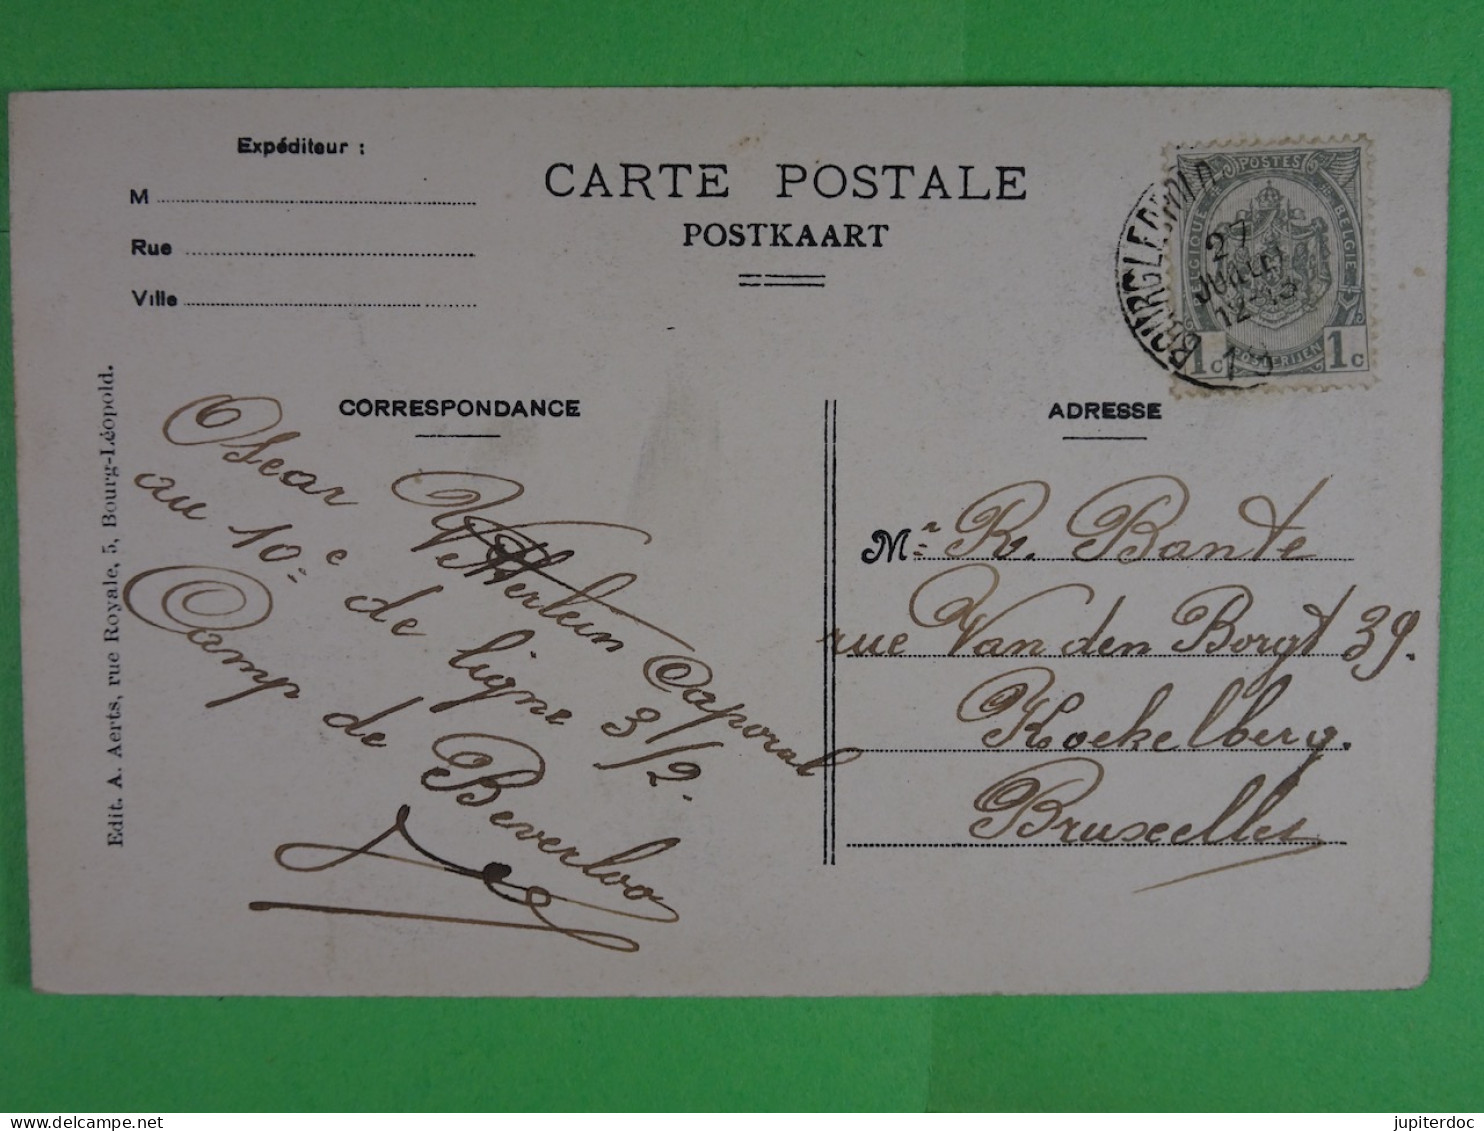 Expéditeur :
M
Rue
Ville
CARTE POSTALE
POSTKAART
BOURG LEOPOLD
27
JUILLET
12-13
10
POSTES
BELGIQUE
BELGIE
POSTERIJEN
1c 1c
Edit. A. Aerts, rue Royale, 5, Bourg-Léopold.
CORRESPONDANCE
Oscar Caporal
au 10e de ligne 3/2.
Camp de Beverloo
ADRESSE
Mr R. Bante
rue Van den Borgt 39.
Koekelberg.
Bruxelles
jupiterdoc